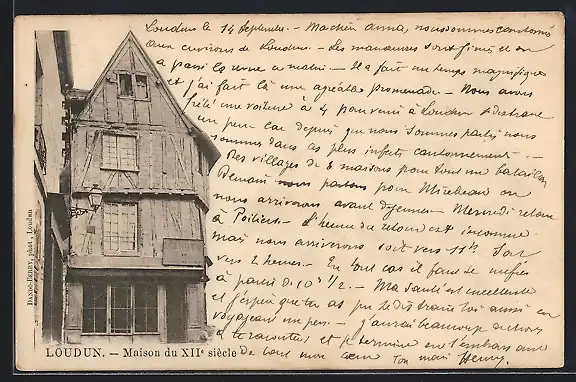 Loudun le 14 Septembre. - Ma chère Anna, nous sommes cantonnés
aux environs de Loudun. - Les manœuvres sont finies et on
a passé la revue ce matin. - Il a fait un temps magnifique
et j'ai fait là une agréable promenade. - Nous avons
frété une voiture à 4 pour venir à Loudun se distraire
un peu car depuis que nous sommes partis nous
sommes dans les plus infects cantonnements. -
Des villages de 3 maisons pour tout un bataillon
Demain nous partons pour Mirebeau où
nous arriverons avant déjeuner. Mercredi retour
à Poitiers. - L'heure du retour est inconnue
mais nous arriverons soit vers 11h soit
vers 2 heures. - En tout cas il faut se méfier
à partir de 10h 1/2. - Ma santé est excellente
et j'espère que tu as pu te distraire toi aussi en
voyageant un peu. - J'aurai beaucoup de choses
à te raconter et je termine en t'embrassant
de tout mon cœur Ton mari Henry.
DANDO-BERRY, phot. Loudun
LOUDUN. — Maison du XIIe siècle